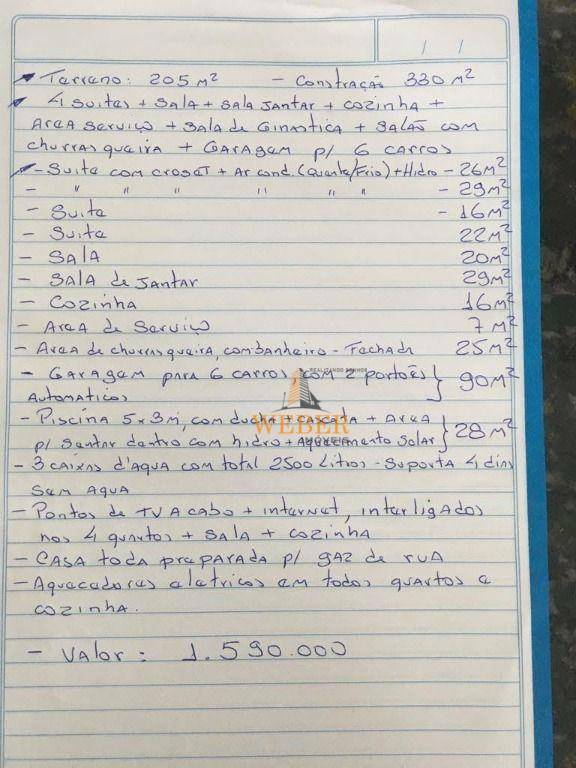 / /
Terreno: 205 m² - Construção 330 m²
4 Suites + SALA + SALA JANTAR + COZINHA +
AREA Serviço + SALA de GINASTICA + SALÃO COM
churrasqueira + GARAGEM p/ 6 CARROS
- Suite com croset + Ar cond. (Quente/Frio) + Hidro - 26 m²
- " " " " " " - 29 m²
- Suite - 16 m²
- Suite 22 m²
- SALA 20 m²
- SALA de JANTAR 29 m²
- COZINHA 16 m²
- AREA de Serviço 7 m²
- AREA de churrasqueira, com banheiro - Fechada 25 m²
- GARAGEM PARA 6 CARROS COM 2 portões } 90 m²
Automaticos
- Piscina 5x3m, com ducha + cascata + AREA } 28 m²
p/ Sentar dentro com hidro + Aquecimento Solar
REALIZANDO SONHOS
WEBER
IMÓVEIS
- 3 CAIXAS d'AQUA com total 2500 Litros - Suporta 4 dias
Sem AQUA
- Pontos de TV A CABO + internet, interligados
nos 4 quartos + SALA + COZINHA
- CASA toda preparada p/ gaz de rua
- Aquecedores eletricos em todos quartos e
cozinha.
- Valor: 1.590.000